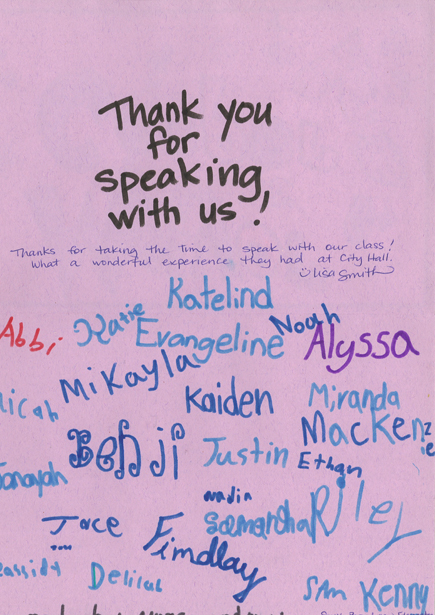 Thank you
for
speaking
with us!
Thanks for taking the time to speak with our class!
What a wonderful experience they had at City Hall.
Lisa Smith
Katelind
Abbi Katie Evangeline Noah Alyssa
Mikayla
Micah Kaiden Miranda
Benji Justin MacKenzie
Janayah Ethan
Nadia
Jace Samantha Riley
Findlay
Cassidy Delilah
Sam Kenny